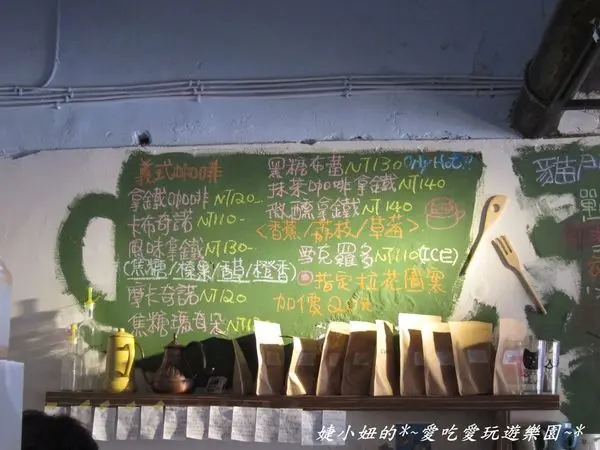 義式咖啡
拿鐵咖啡NT120-
卡布奇諾NT110-
風味拿鐵NT130-
(焦糖/榛果/香草/橙香)
摩卡奇諾NT120
焦糖瑪奇朵NT
黑糖布蕾NT130 Only Hot!!
抹茶咖啡拿鐵NT140
微醺拿鐵NT140
<香蕉/荔枝/草莓>
雪克羅多NT110(ICE)
指定拉花圖案
加價20元
貓
婕小妞的*~愛吃愛玩遊樂園~*